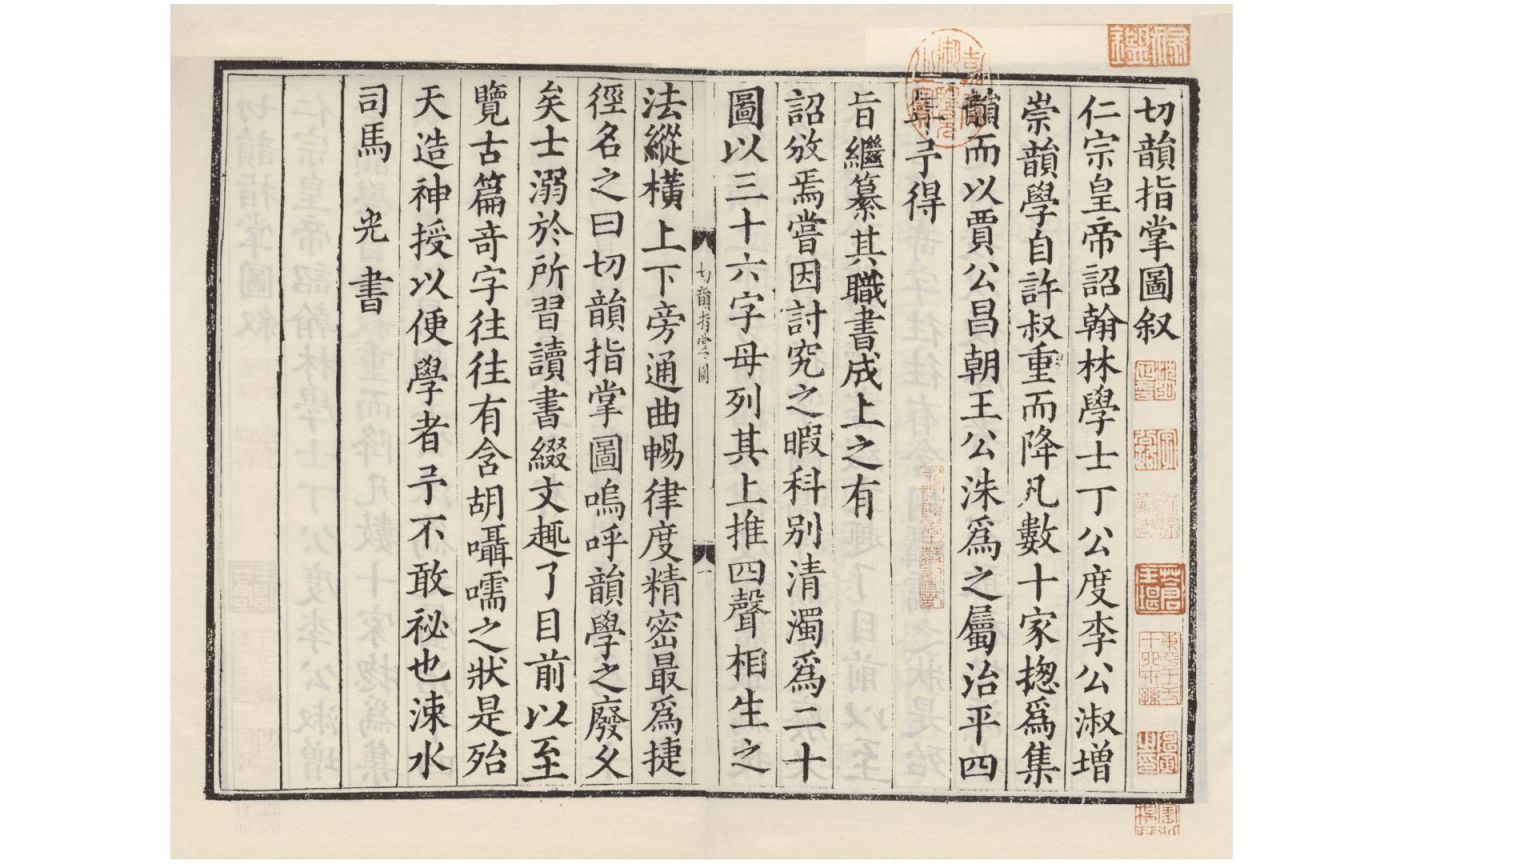 切韻指掌圖叙
仁宗皇帝詔翰林學士丁公度李公淑增
崇韻學自許叔重而降凡數十家揔爲集
韻而以賈公昌朝王公洙爲之屬治平四
年予得
旨繼纂其職書成上之有
詔攽焉嘗因討究之暇科别清濁爲二十
圖以三十六字母列其上推四聲相生之
切韻指掌圖
一
法縱橫上下旁通曲暢律度精密最爲捷
徑名之曰切韻指掌圖嗚呼韻學之廢久
矣士溺於所習讀書綴文趣了目前以至
覽古篇竒字往往有含胡囁嚅之狀是殆
天造神授以便學者予不敢祕也涑水
司馬 光 書